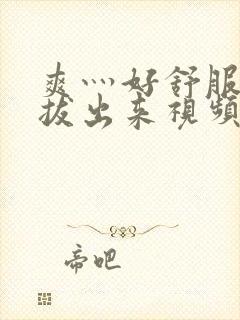 爽灬好舒服
拔出来視頻
帝吧